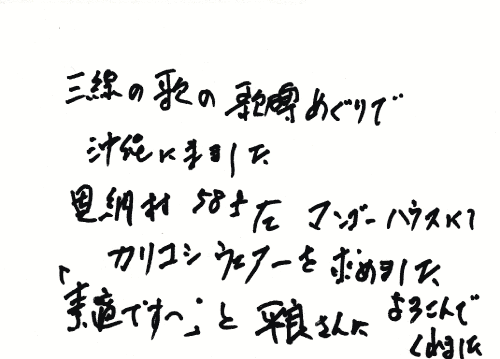 三線の歌の歌碑めぐりで
沖縄にきました
恩納村 58号左 マンゴーハウスにて
カリユシウェアーを求めました
「素適ですヘ」と 平良さんに よろこんで
くれました